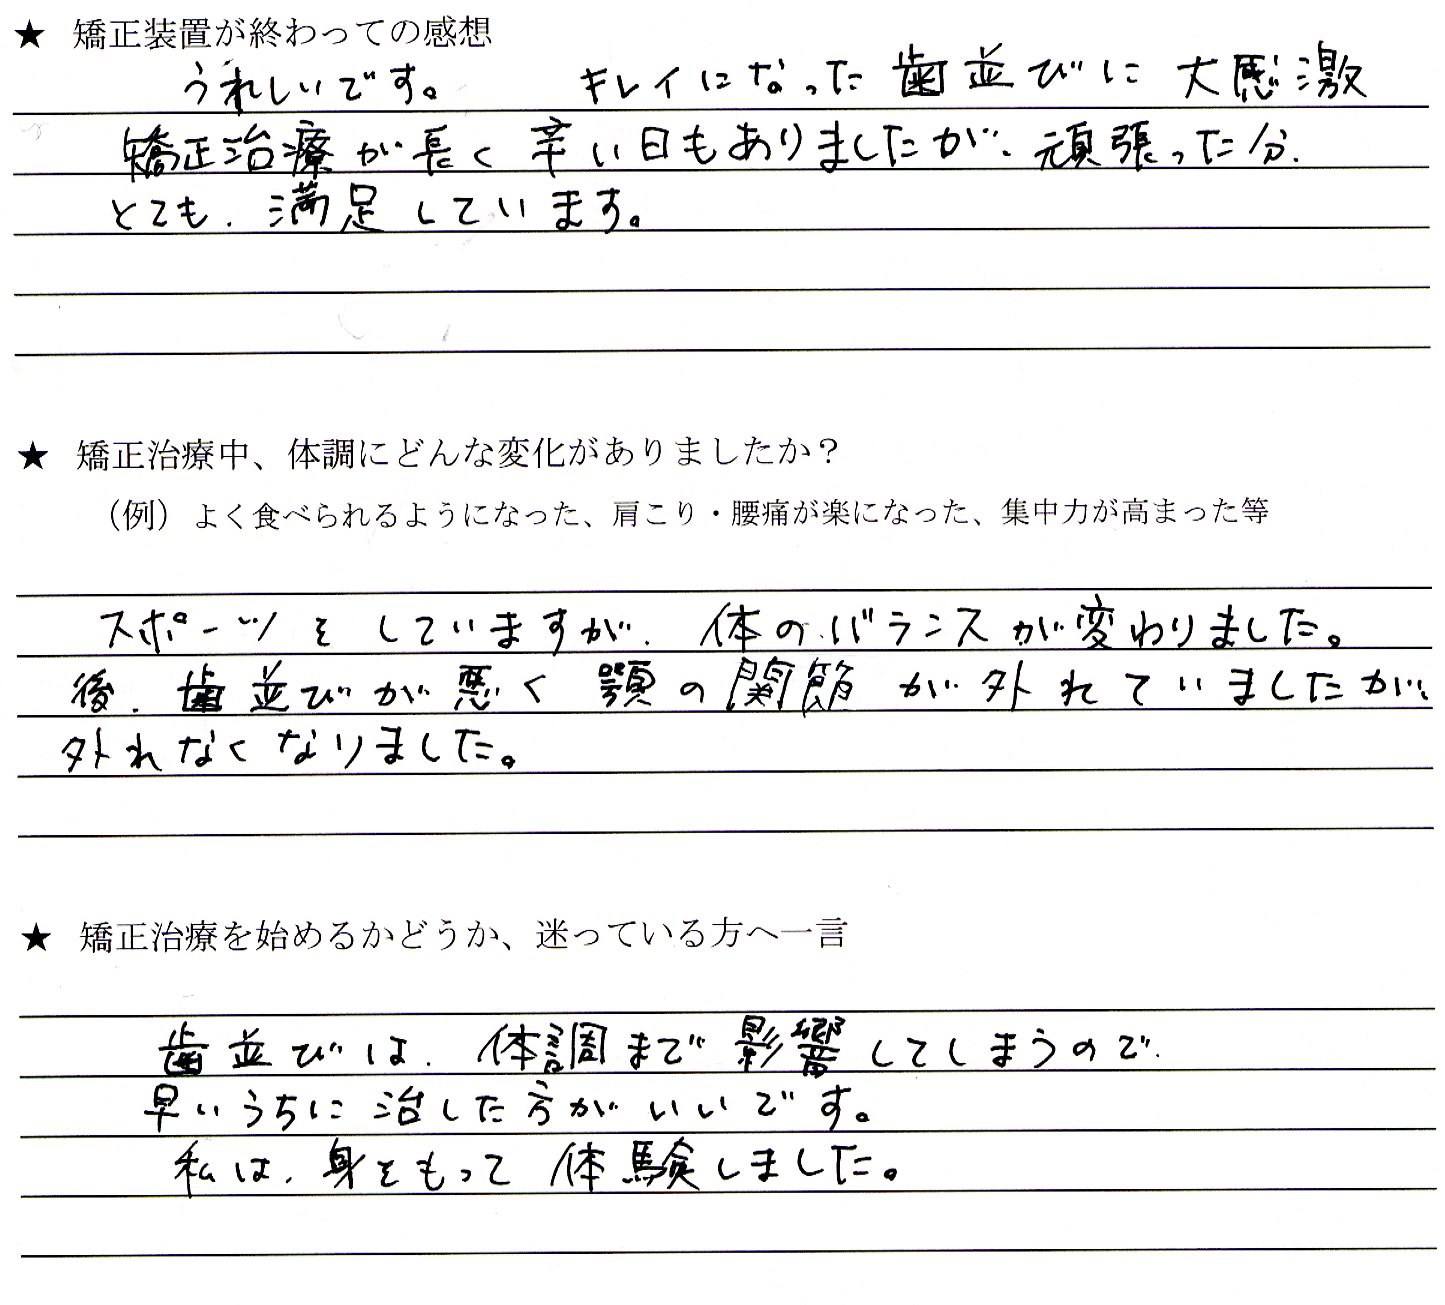 ★ 矯正装置が終わっての感想
うれしいです。 キレイになった歯並びに大感激
矯正治療が長く辛い日もありましたが、頑張った分、
とても、満足しています。
★ 矯正治療中、体調にどんな変化がありましたか？
（例）よく食べられるようになった、肩こり・腰痛が楽になった、集中力が高まった等
スポーツをしていますが、体のバランスが変わりました。
後、歯並びが悪く顎の関節が外れていましたが、
外れなくなりました。
★ 矯正治療を始めるかどうか、迷っている方へ一言
歯並びは、体調まで影響してしまうので、
早いうちに治した方がいいです。
私は、身をもって体験しました。